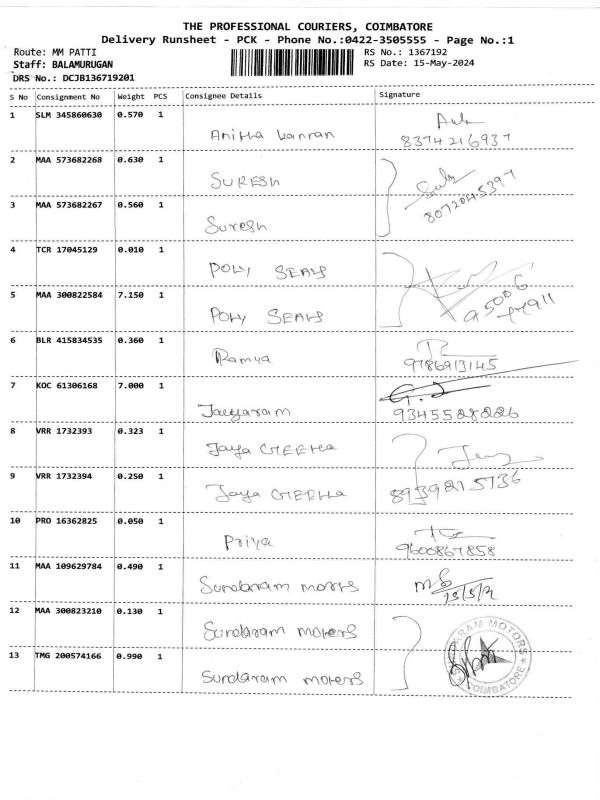 THE PROFESSIONAL COURIERS, COIMBATORE
Delivery Runsheet - PCK - Phone No.:0422-3505555 - Page No.:1
Route: MM PATTI RS No.: 1367192
Staff: BALAMURUGAN RS Date: 15-May-2024
DRS No.: DCJB136719201
S No Consignment No Weight PCS Consignee Details Signature
1 SLM 345860630 0.570 1 Anitha kannan
8374216937
2 MAA 573682268 0.630 1 SURESH
8072045397
3 MAA 573682267 0.560 1 Suresh
4 TCR 17045129 0.010 1 POLY SEALS
5 MAA 300822584 7.150 1 POLY SEALS
6 BLR 415834535 0.360 1 Ramya
9786913145
7 KOC 61306168 7.000 1 Jaiyaram
9345528226
8 VRR 1732393 0.323 1 Jaya GEEtHa
9 VRR 1732394 0.250 1 Jaya GEEtHa
8939215736
10 PRO 16362825 0.050 1 Priya
9600867858
11 MAA 109629784 0.490 1 Sundaram motrs
12 MAA 300823210 0.130 1 Sundaram moters
13 TMG 200574166 0.990 1 Sundaram moters
MOTORS
COIMBATORE